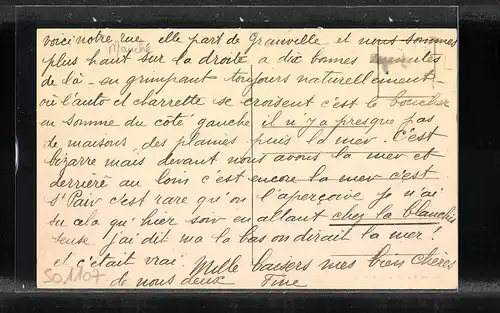 voici notre rue elle part de Granville et nous sommes
Manche
plus haut sur la droite a dix bonnes minutes
de là - en grimpant toujours naturellement -
où l'auto et charrette se croisent c'est le boucher
en somme du côté gauche il n'y a presque pas
de maisons, des plaines puis la mer. C'est
bizarre mais devant nous avons la mer et
derrière au loin c'est encore la mer c'est
St Pair c'est rare qu'on l'aperçoive je n'ai
su cela qu'hier soir en allant chez la blanchis
seuse j'ai dit ma la bas on dirait la mer!
et c'était vrai Mille baisers mes bien chères
de nous deux Fine
SO1107